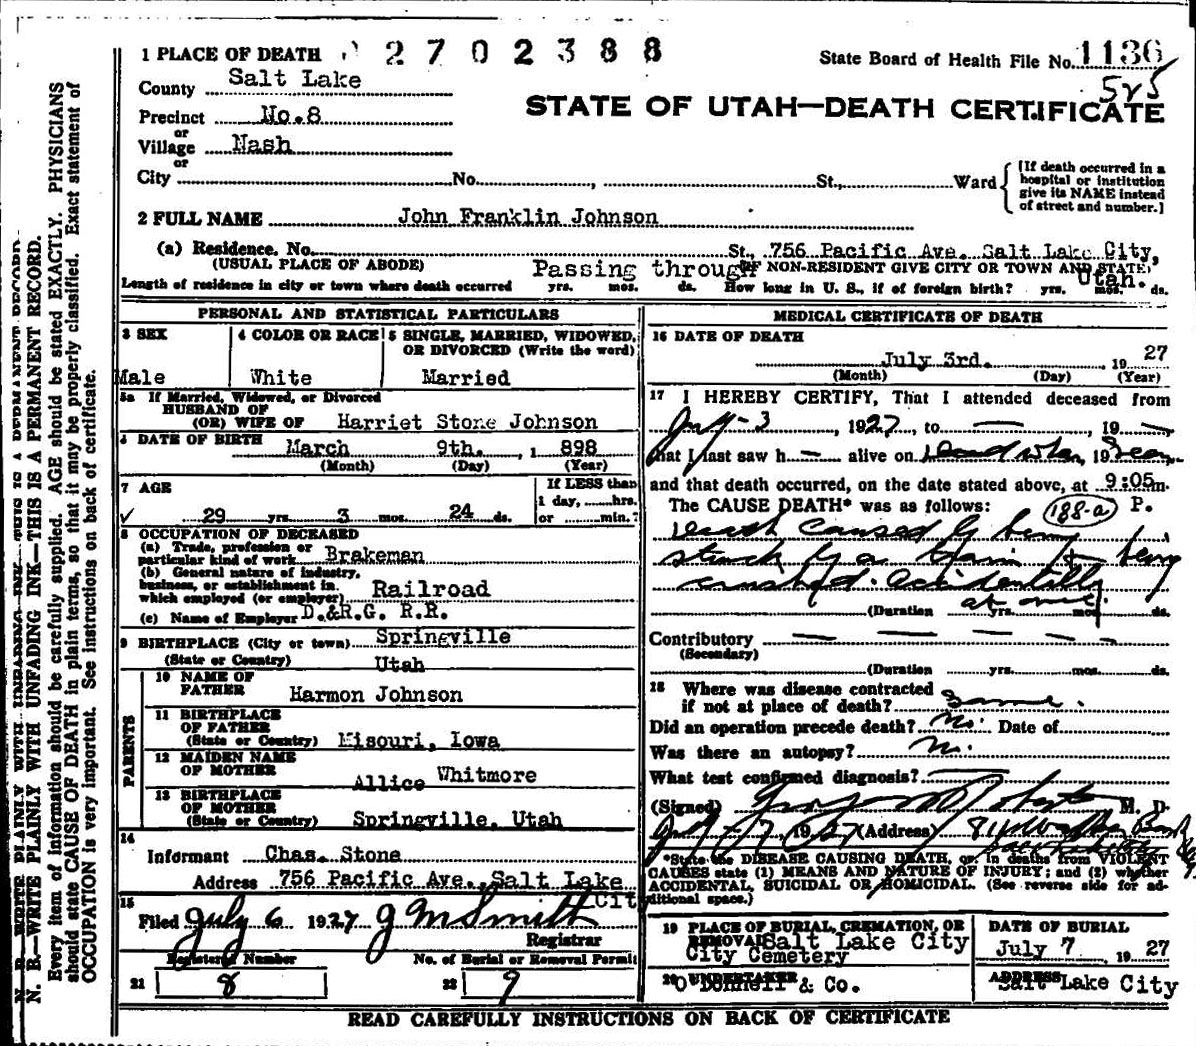 1 PLACE OF DEATH
2702388
State Board of Health File No. 1136
525
County Salt Lake
STATE OF UTAH—DEATH CERTIFICATE
Precinct No.8
or
Village Nash
or
City No. , St., Ward
[If death occurred in a hospital or institution give its NAME instead of street and number.]
2 FULL NAME John Franklin Johnson
(a) Residence. No. St., 756 Pacific Ave. Salt Lake City, Utah.
(USUAL PLACE OF ABODE) (IF NON-RESIDENT GIVE CITY OR TOWN AND STATE)
Length of residence in city or town where death occurred Passing through yrs. mos. ds. How long in U. S., if of foreign birth? yrs. mos. ds.
PERSONAL AND STATISTICAL PARTICULARS
3 SEX
Male
4 COLOR OR RACE
White
5 SINGLE, MARRIED, WIDOWED, OR DIVORCED (Write the word)
Married
5a If Married, Widowed, or Divorced
HUSBAND OF
(OR) WIFE OF Harriet Stone Johnson
6 DATE OF BIRTH March 9th. , 1 898
(Month) (Day) (Year)
7 AGE
If LESS than
1 day, hrs.
or min.?
29 yrs. 3 mos. 24 ds.
8 OCCUPATION OF DECEASED
(a) Trade, profession or
particular kind of work Brakeman
(b) General nature of industry,
business, or establishment in
which employed (or employer) Railroad
(c) Name of Employer D.&R.G. R.R.
9 BIRTHPLACE (City or town) Springville
(State or Country) Utah
PARENTS
10 NAME OF
FATHER Harmon Johnson
11 BIRTHPLACE
OF FATHER
(State or Country) Misouri, Iowa
12 MAIDEN NAME
OF MOTHER Allice Whitmore
13 BIRTHPLACE
OF MOTHER
(State or Country) Springville, Utah
14
Informant Chas. Stone
Address 756 Pacific Ave., Salt Lake City
15
Filed July 6 1927 J M Smith
Registrar
Registered Number
No. of Burial or Removal Permit
21 8
22 9
MEDICAL CERTIFICATE OF DEATH
16 DATE OF DEATH
July 3rd. , 19 27
(Month) (Day) (Year)
17 I HEREBY CERTIFY, That I attended deceased from
July - 3 , 1927, to — , 19 —
that I last saw h — alive on Dead when , 19 Seen
and that death occurred, on the date stated above, at 9:05 m.
The CAUSE DEATH* was as follows: 188-a P.
Death caused by being
struck by a train & being
crushed. accidentally
at once.
(Duration yrs. mos. ds.
Contributory — — — —
(Secondary)
(Duration yrs. mos. ds.
18 Where was disease contracted
if not at place of death? Same.
Did an operation precede death? No. Date of
Was there an autopsy? No.
What test confirmed diagnosis? —
(Signed) M. D.
July 7 1927 (Address)
*State the DISEASE CAUSING DEATH, or, in deaths from VIOLENT
CAUSES state (1) MEANS AND NATURE OF INJURY; and (2) whether
ACCIDENTAL, SUICIDAL OR HOMICIDAL. (See reverse side for ad-
ditional space.)
19 PLACE OF BURIAL, CREMATION, OR
REMOVAL Salt Lake City
City Cemetery
DATE OF BURIAL
July 7 , 19 27
20 UNDERTAKER
O'Donnell & Co.
ADDRESS
Salt Lake City
READ CAREFULLY INSTRUCTIONS ON BACK OF CERTIFICATE
N. B.—WRITE PLAINLY WITH UNFADING INK—THIS IS A PERMANENT RECORD.
N. B.—WRITE PLAINLY WITH UNFADING INK—THIS IS A PERMANENT RECORD.
Every item of information should be carefully supplied. AGE should be stated EXACTLY. PHYSICIANS
should state CAUSE OF DEATH in plain terms, so that it may be properly classified. Exact statement of
OCCUPATION is very important. See instructions on back of certificate.